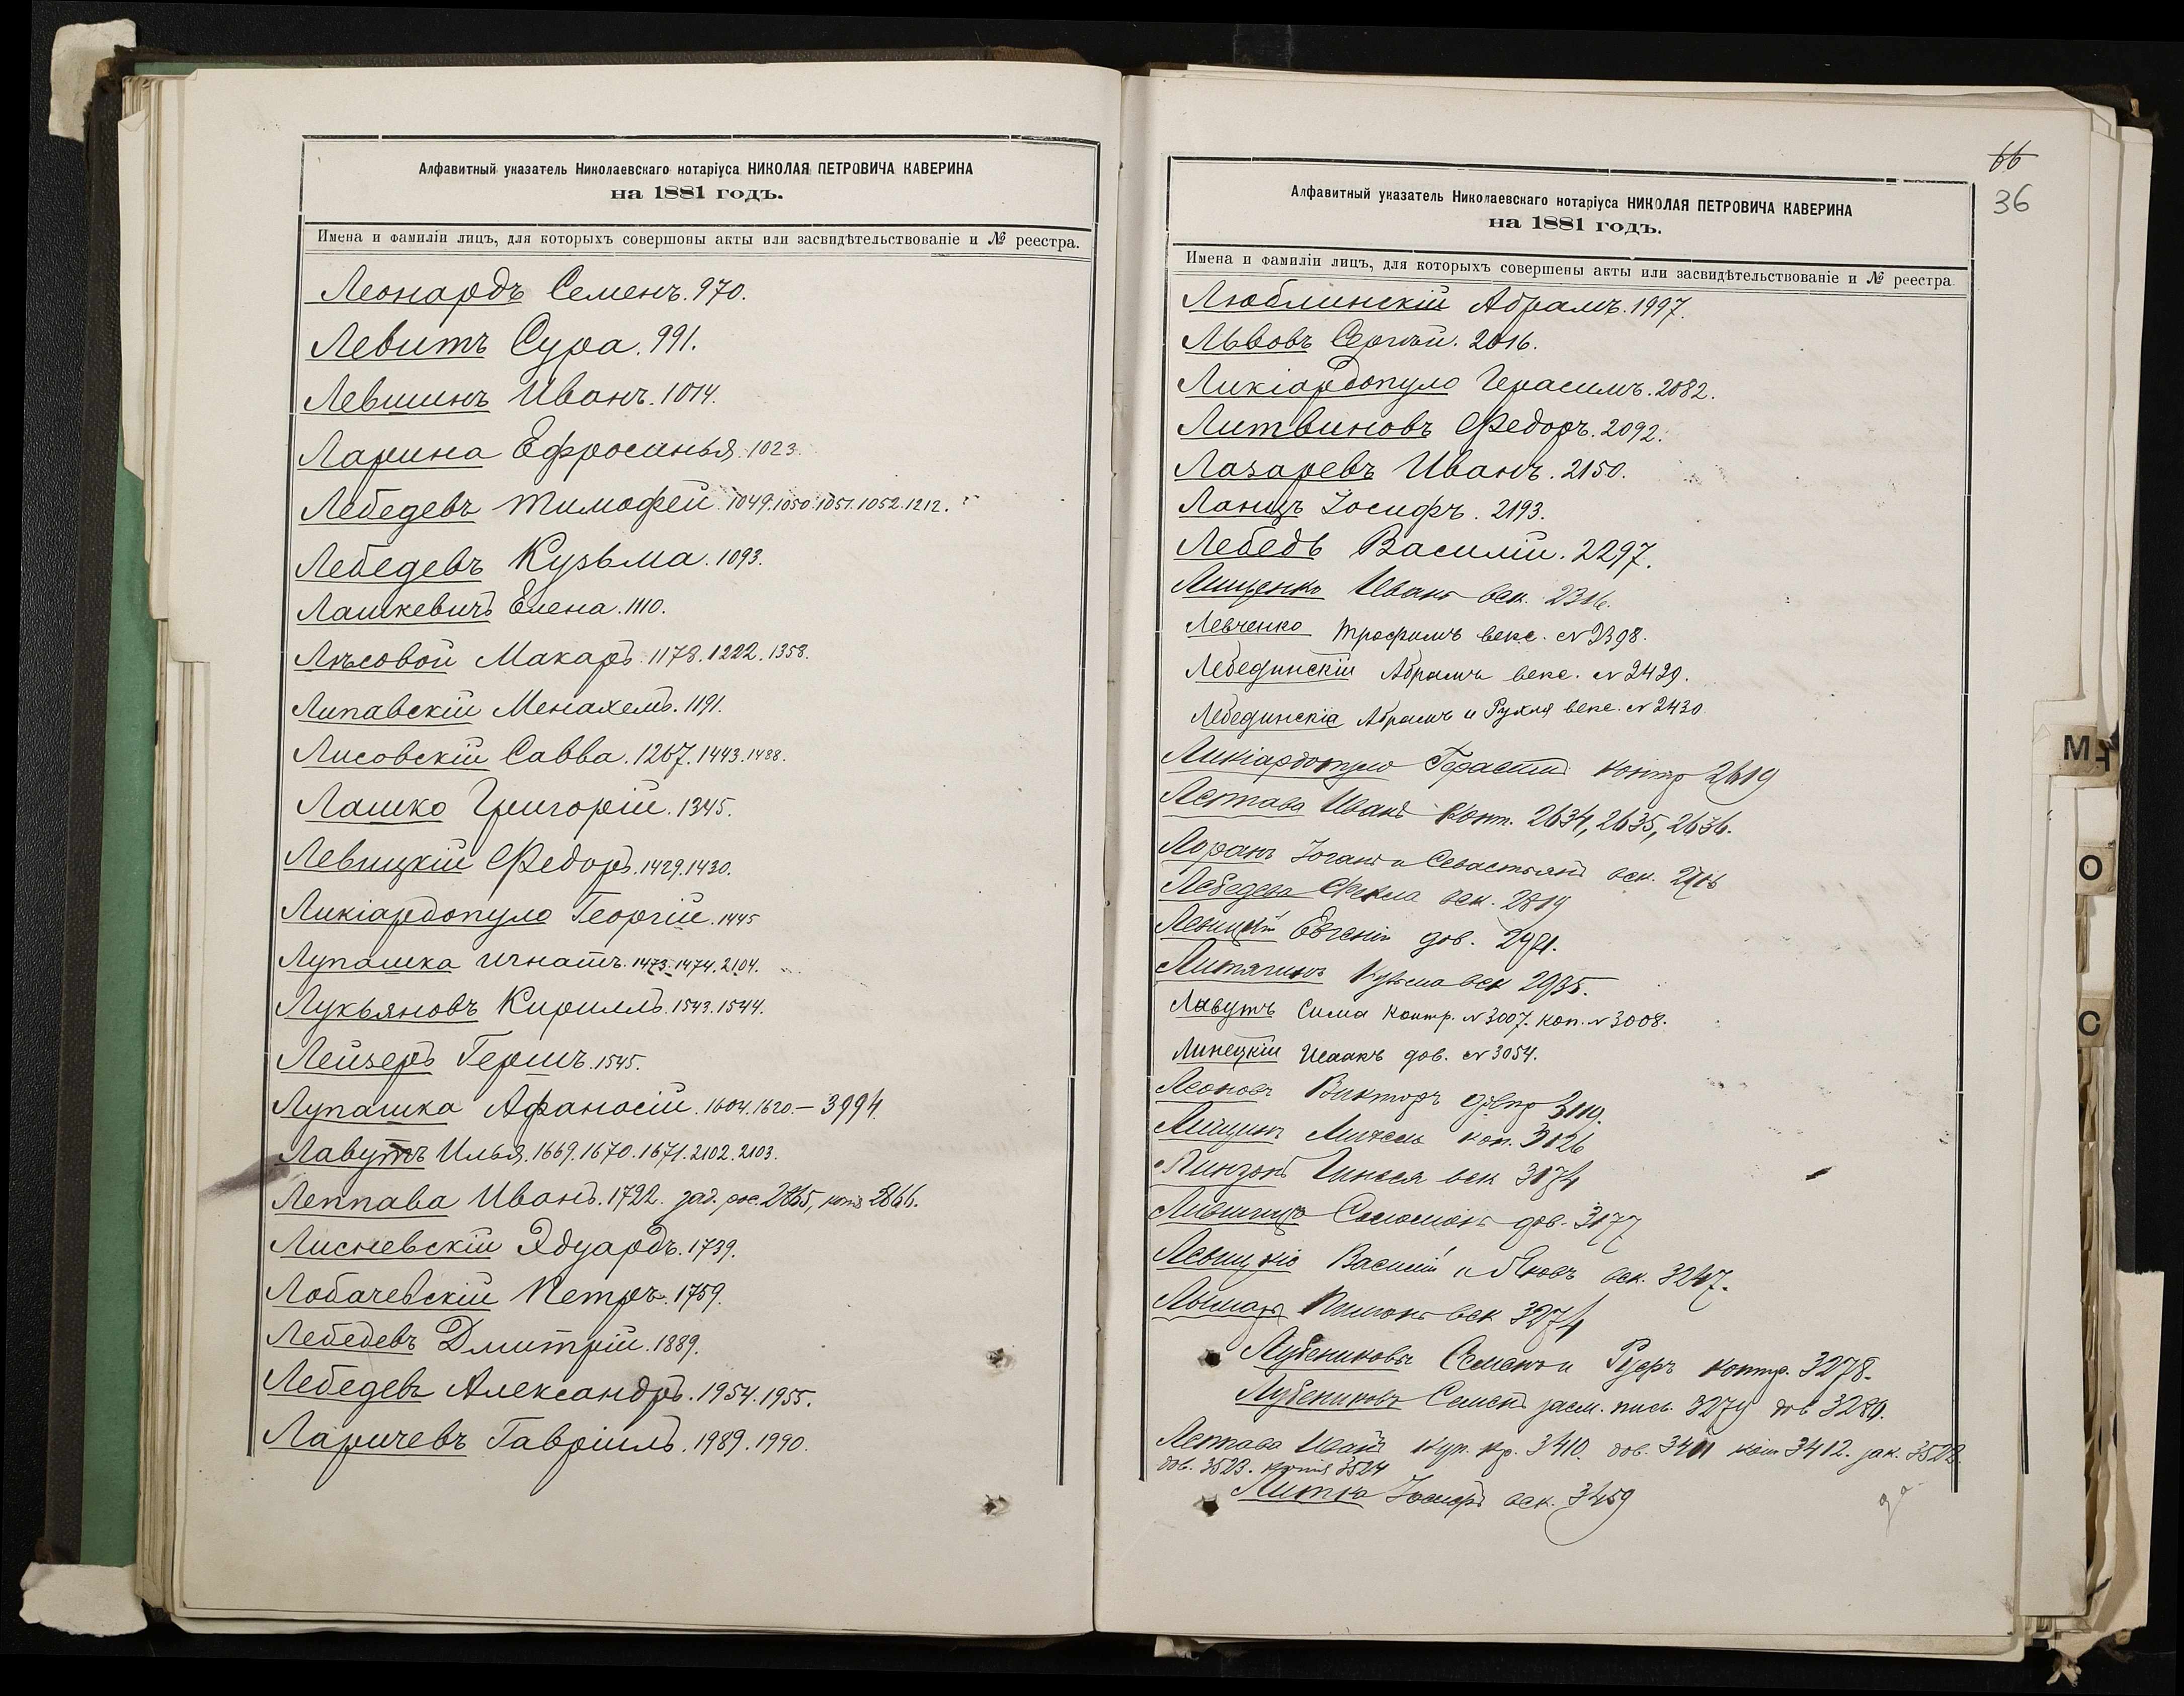 Алфавитный указатель Николаевскаго нотаріуса НИКОЛАЯ ПЕТРОВИЧА КАВЕРИНА
на 1881 годъ.
Имена и фамиліи лицъ, для которыхъ совершоны акты или засвидѣтельствованіе и № реестра.
Леонардъ Семенъ. 970.
Левитъ Сура. 991.
Левшинъ Иванъ. 1014.
Ларина Ефросинья. 1023.
Лебедевъ Тимофей. 1049. 1050. 1051. 1052. 1212.
Лебедевъ Кузьма. 1093.
Лашкевичъ Елена. 1110.
Лѣсовой Макаръ. 1178. 1222. 1358.
Липавскій Менахемъ. 1191.
Лисовскій Савва. 1267. 1443. 1488.
Лашко Григорій. 1345.
Левицкій Федоръ. 1429. 1430.
Ликіардопуло Георгій. 1445
Лупашка Игнатъ. 1473. 1474. 2104.
Лукьяновъ Кириллъ. 1543. 1544.
Лейзеръ Гершъ. 1545.
Лупашка Афанасій. 1604. 1620. — 3994.
Лавутъ Илья. 1669. 1670. 1671. 2102. 2103.
Леппава Иванъ. 1722. 2865, 2866.
Лисневскій Эдуардъ. 1739.
Лобачевскій Петръ. 1759.
Лебедевъ Дмитрій. 1889.
Лебедевъ Александръ. 1954. 1955.
Ларичевъ Гавріилъ. 1989. 1990.
66
36
Алфавитный указатель Николаевскаго нотаріуса НИКОЛАЯ ПЕТРОВИЧА КАВЕРИНА
на 1881 годъ.
Имена и фамиліи лицъ, для которыхъ совершены акты или засвидѣтельствованіе и № реестра
Люблинскій Абрамъ. 1997.
Львовъ Сергѣй. 2016.
Ликіардопуло Герасимъ. 2082.
Литвиновъ Федоръ. 2092.
Лазаревъ Иванъ. 2150.
Ланцъ Іосифъ. 2193.
Лебедь Василій. 2297.
Лищенко Иванъ век. 2316.
Левченко Трофимъ векс. № 2398.
Лебединскій Абрамъ векс. № 2429.
Лебединскіе Абрамъ и Рухля векс. № 2430
Ликіардопуло Герасимъ контр 2619
Леппава Иванъ Конт. 2634, 2635, 2636.
Лоранъ Іоганъ и Севастьянъ век.
Лебедева Фекла век. 2819
Левицкій Евгеній дов.
Литягинъ Кузьма век 2935.
Лавутъ Сима контр. № 3007. коп. № 3008.
Линецкій Исаакъ дов. № 3054.
Леоновъ Викторъ 3119.
коп. 3126
век 3174
Лившицъ Соломонъ дов. 3177
Левицкіе Василій и Яковъ век. 3247.
век 3274
Лубениковы Семенъ и контр. 3278.
Лубениковъ Семенъ 3279 дов 3280.
Леппава Иванъ куп. кр. 3410. дов. 3411 коп 3412. зак. 3522.
дов. 3523. копія 3524
Іосифъ век. 3459
М
О
С